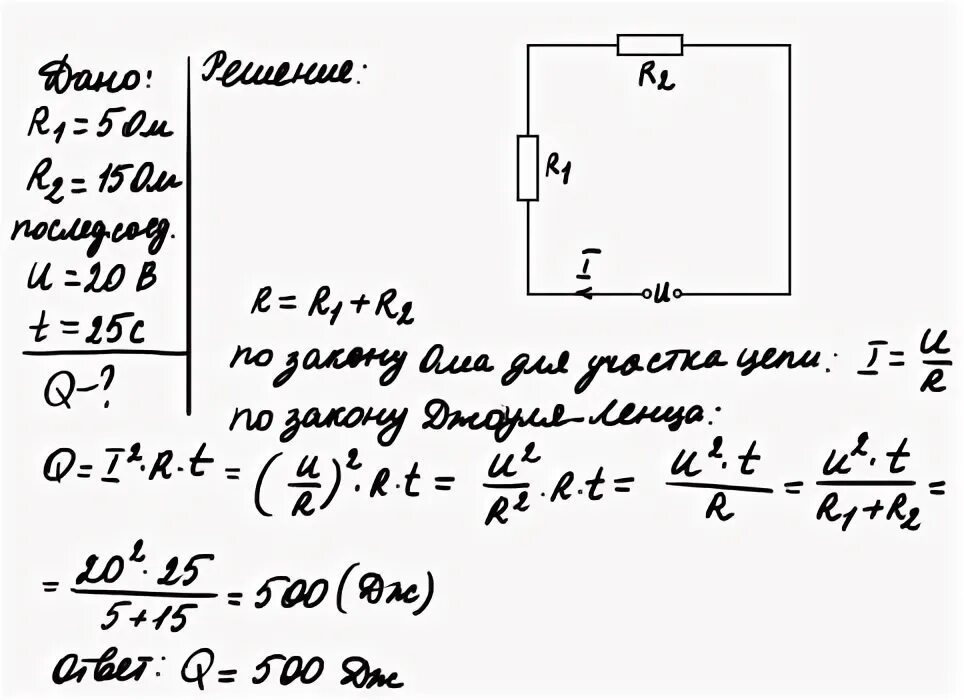 Дано:
R₁ = 5 Ом
R₂ = 15 Ом
послед.соед.
U = 20 В
t = 25 с
Q – ?
Решение:
R₂
R₁
I
U
R = R₁ + R₂
по закону Ома для участка цепи: I = U/R
по закону Джоуля-Ленца:
Q = I² · R · t = (U/R)² · R · t = U²/R² · R · t = U² · t/R = U² · t/R₁ + R₂ =
= 20² · 25/5 + 15 = 500 (Дж)
Ответ: Q = 500 Дж